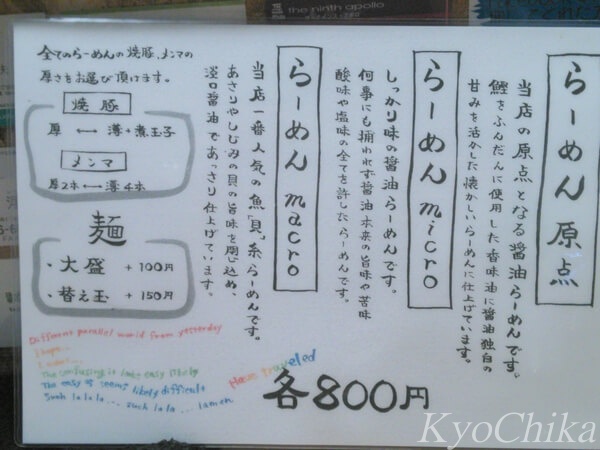 the ninth apollo
らーめん 原点
当店の原点となる醤油らーめんです。
鰹をふんだんに使用した香味油に醤油独自の
甘みを活かした懐かしいらーめんに仕上げています。
らーめん micro
しっかり味の醤油らーめんです。
何事にも捕われず醤油本来の旨味や苦味
酸味や塩味の全てを許したらーめんです。
らーめん macro
当店一番人気の魚「貝」系らーめんです。
あさりやしじみの貝の旨味を閉じ込め、
淡口醤油であっさり仕上げています。
全てのらーめんの焼豚、メンマの
厚さをお選び頂けます。
焼豚
厚 ←→ 薄+煮玉子
メンマ
厚2本 ←→ 薄4本
麺
・大盛 +100円
・替え玉 +150円
Different parallel world from yesterday
I hope...
The confusing it looks easy likely
The easy it seems likely difficult
Such la la la... such la la... lamen
Have traveled
各800円
KyoChika